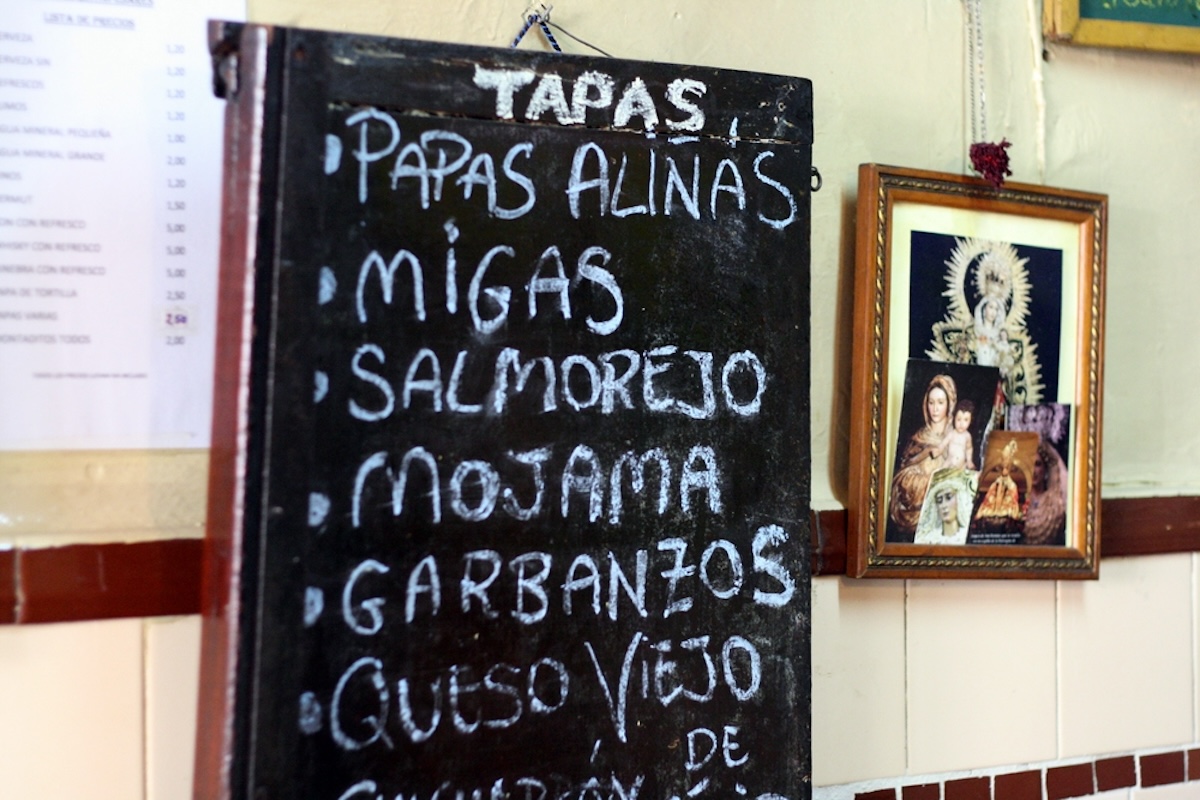 LISTA DE PRECIOS
ERVEZA 1,20
ERVEZA SIN 1,20
EFRESCOS 1,20
UMOS 1,20
GUA MINERAL PEQUEÑA 1,00
GUA MINERAL GRANDE 2,00
INOS 1,20
ERMUT 1,50
ON CON REFRESCO 5,00
WHISKY CON REFRESCO 5,00
INEBRA CON REFRESCO 5,00
APA DE TORTILLA 2,50
APAS VARIAS 2,50
ONTADITOS TODOS 2,00
TAPAS
PAPAS ALIÑÁS
MiGAS
SALMOREJO
MOJAMA
GARBANZOS
QUESO VIEJO
DE